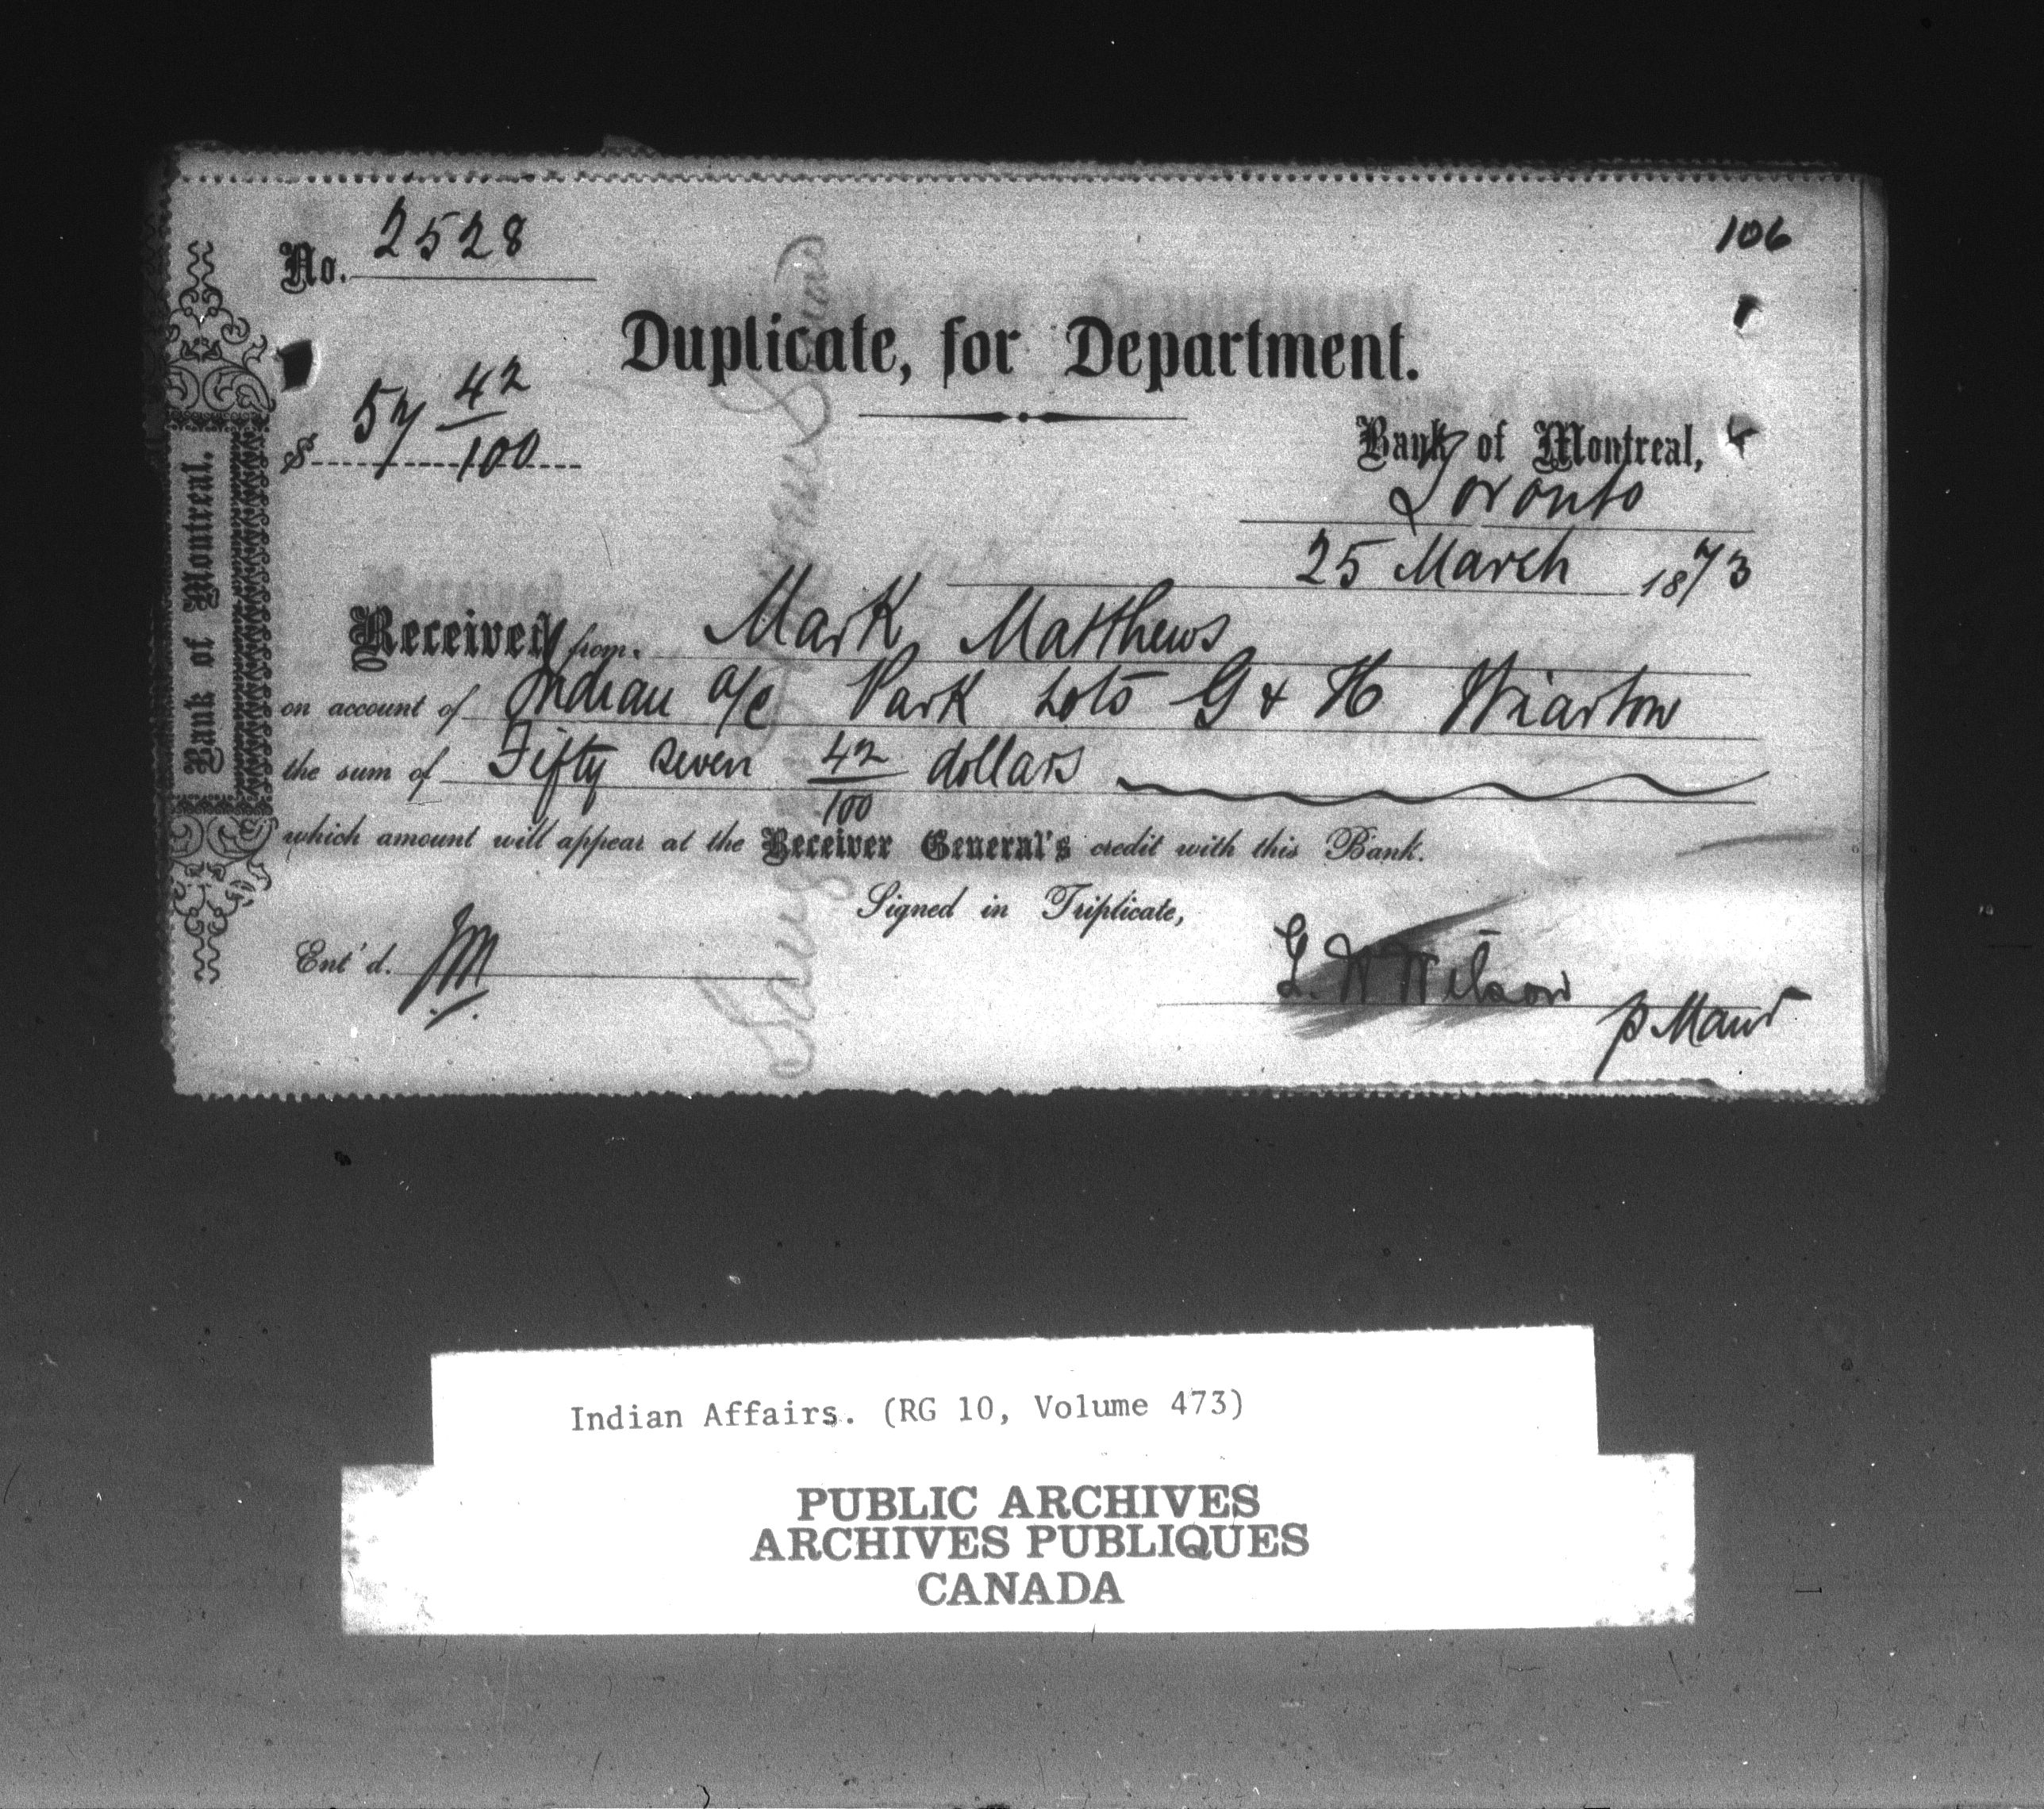 No. 2528
106
Duplicate, for Department.
$ 57 42/100
Bank of Montreal,
Toronto
25 March 1873
Received from Mark Matthews
on account of Indian a/c Park Lots G & H Wiarton
the sum of Fifty seven 42/100 dollars
which amount will appear at the Receiver General's credit with this Bank.
Signed in Triplicate,
Ent'd. JM
G. W Wilson
p Manr
Bank of Montreal.
Indian Affairs. (RG 10, Volume 473)
PUBLIC ARCHIVES
ARCHIVES PUBLIQUES
CANADA